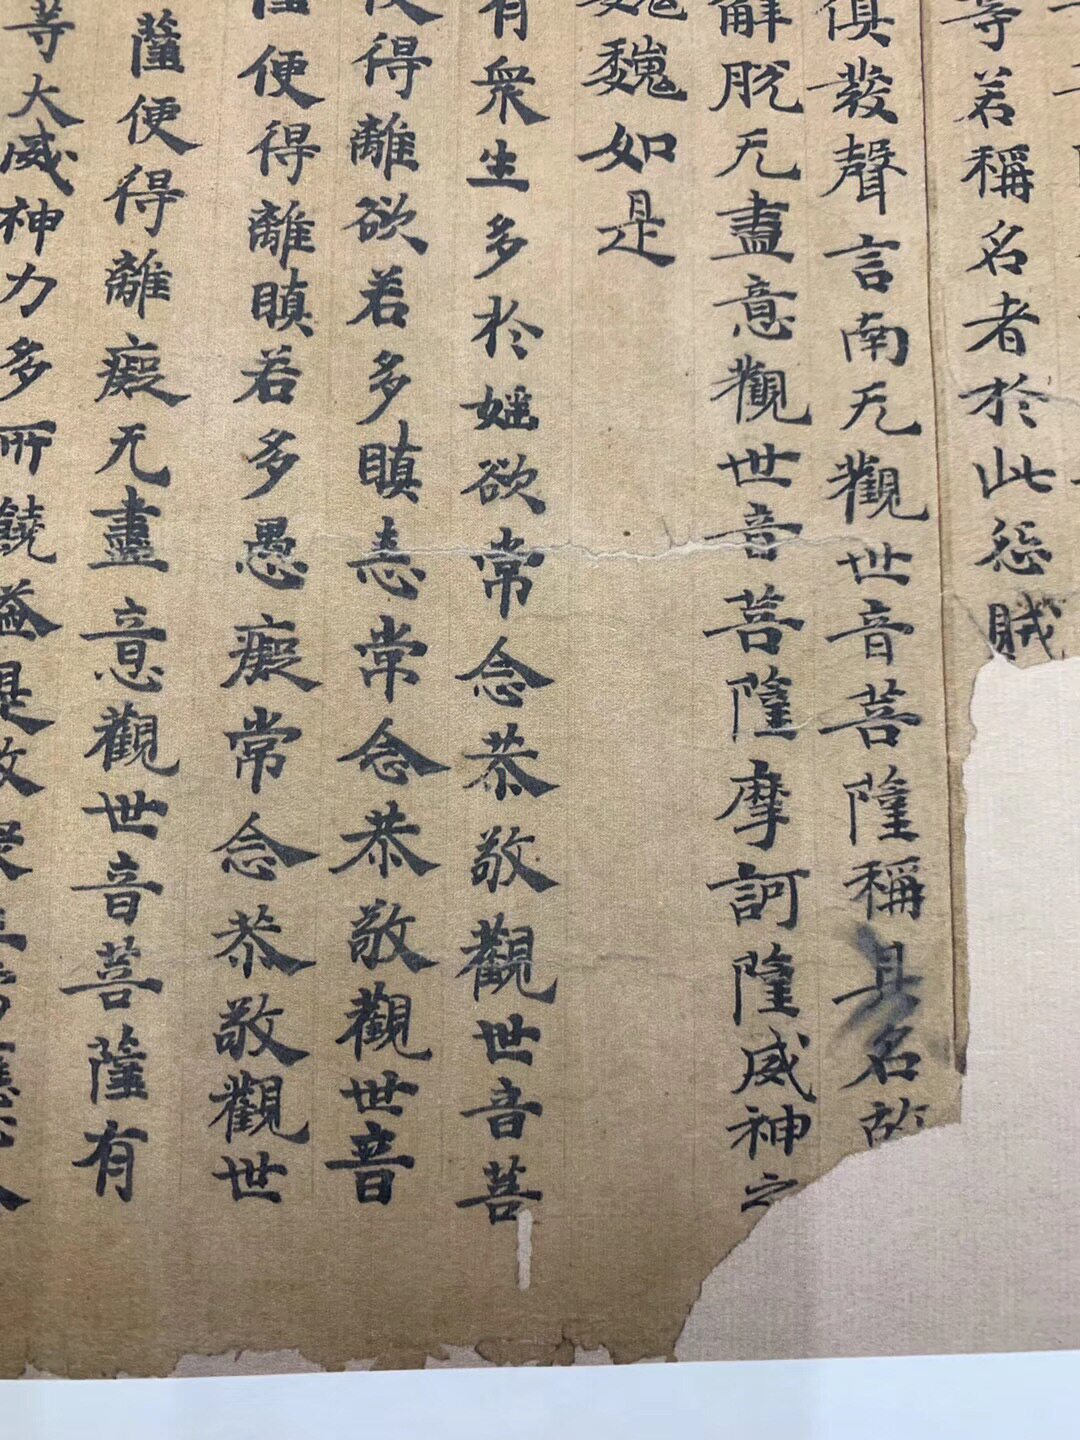 等若稱名者於此怨賊
俱發聲言南无觀世音菩薩稱其名故
解脫无盡意觀世音菩薩摩訶薩威神之
巍如是
有衆生多於婬欲常念恭敬觀世音菩
得離欲若多瞋恚常念恭敬觀世音
便得離瞋若多愚癡常念恭敬觀世
薩便得離癡无盡意觀世音菩薩有
等大威神力多所饒益是故衆生